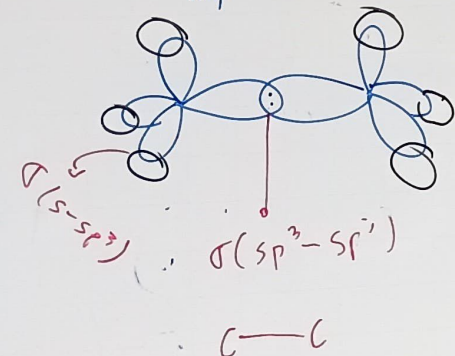 σ(s-sp³)
σ(sp³-sp³)
C—C